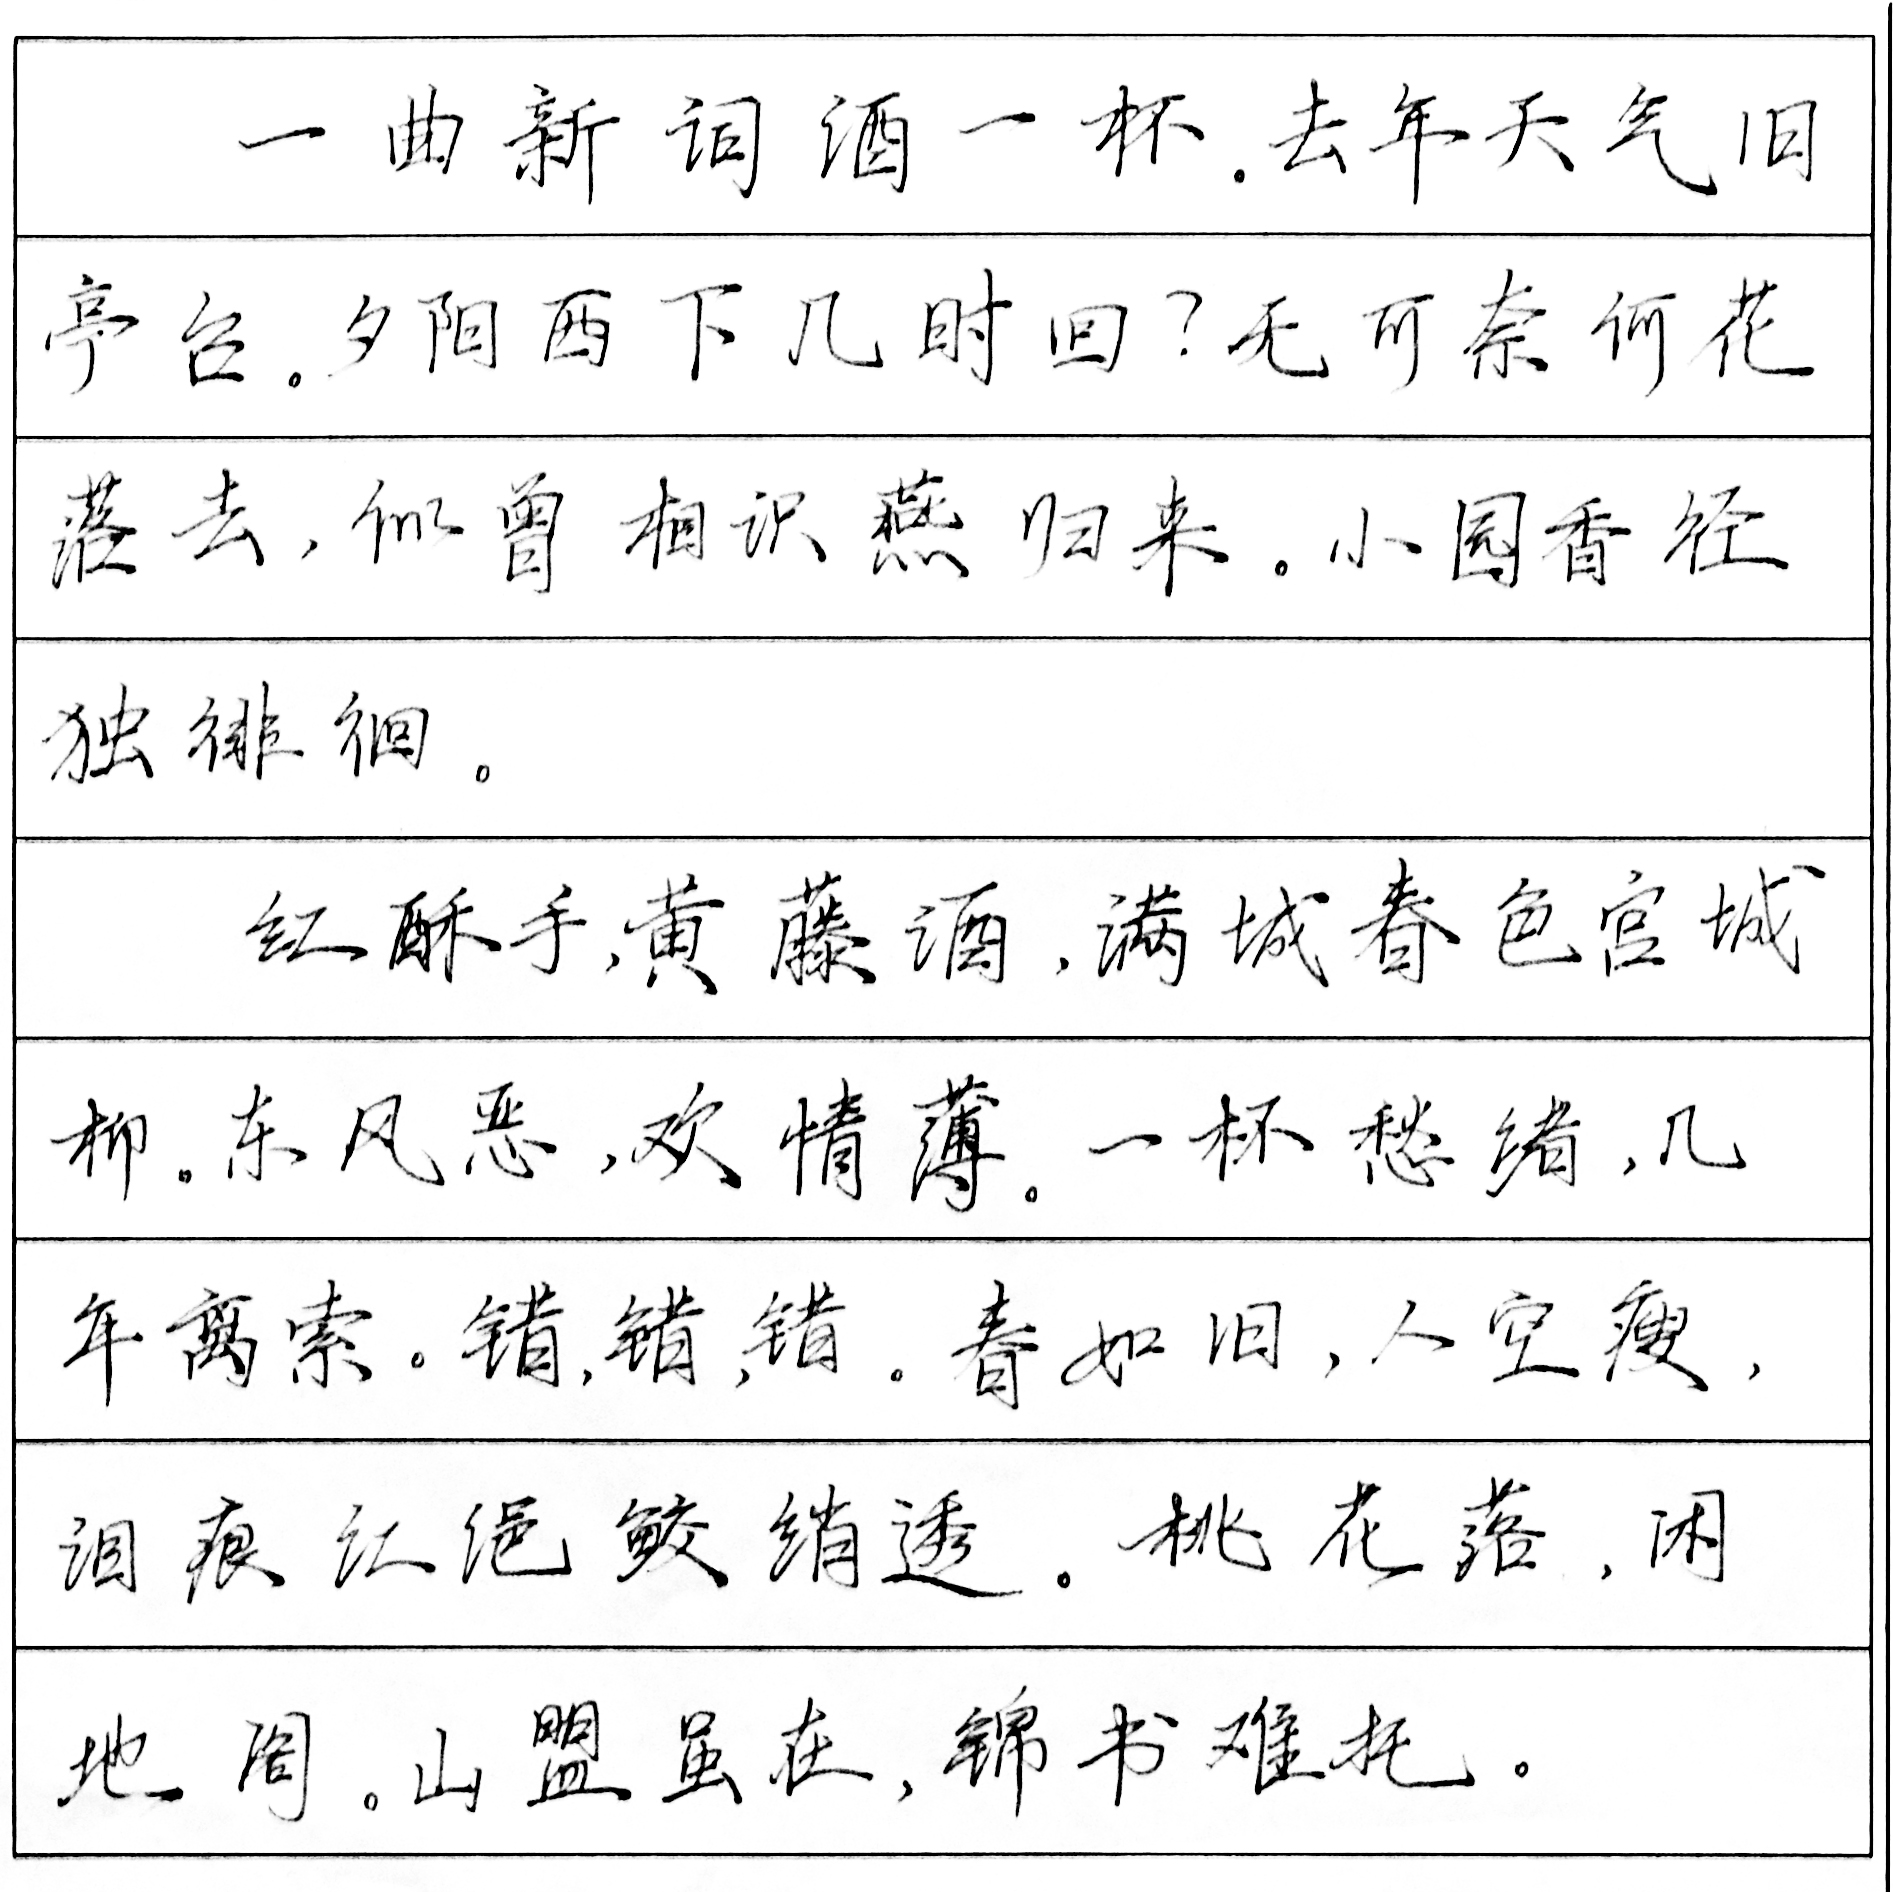 一曲新词酒一杯。去年天气旧
亭台。夕阳西下几时回？无可奈何花
落去，似曾相识燕归来。小园香径
独徘徊。
红酥手，黄藤酒，满城春色宫城
柳。东风恶，欢情薄。一杯愁绪，几
年离索。错，错，错。春如旧，人空瘦，
泪痕红浥鲛绡透。桃花落，闲
地阁。山盟虽在，锦书难托。